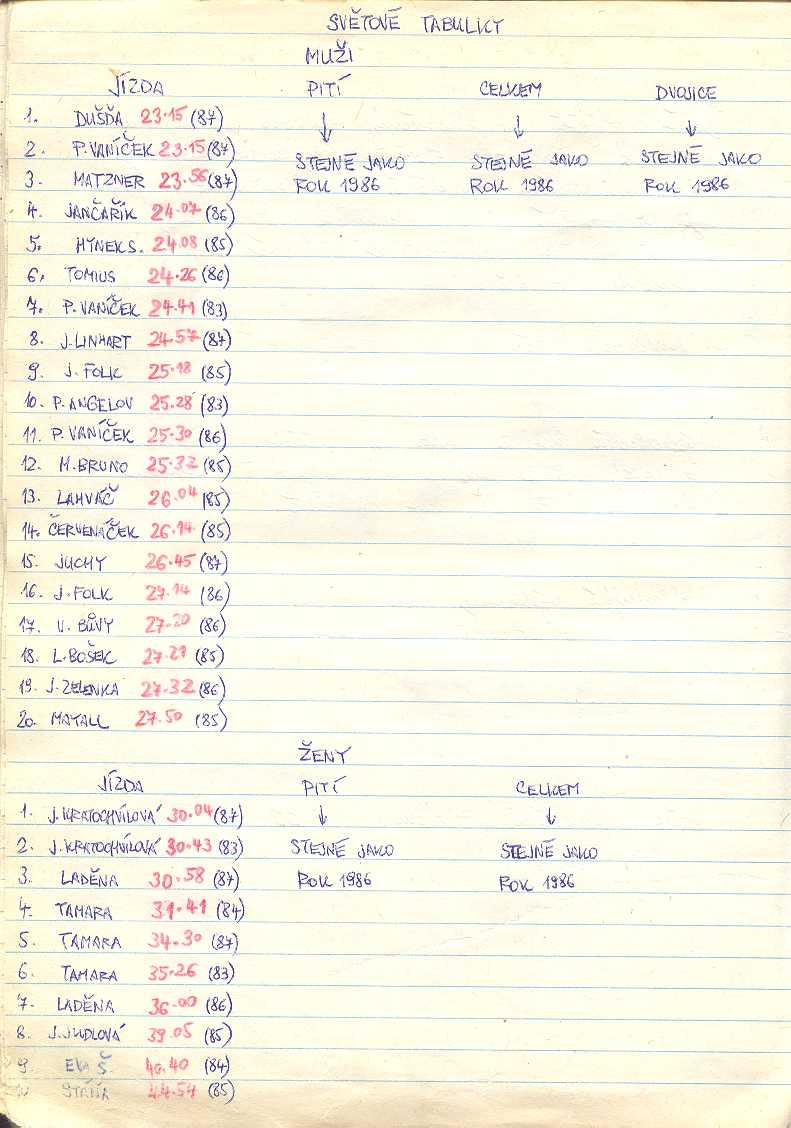 SVĚTOVÉ TABULKY
MUŽI
JÍZDA PITÍ CELKEM DVOJICE
1. DUŠĎA 23.15 (87)
2. P.VANÍČEK 23.15 (87) STEJNĚ JAKO STEJNĚ JAKO STEJNĚ JAKO
3. MATZNER 23.56 (87) ROK 1986 ROK 1986 ROK 1986
4. JANČAŘÍK 24.07 (86)
5. HYNEK S. 24.08 (85)
6. TOMIUS 24.26 (86)
7. P. VANÍČEK 24.41 (83)
8. J. LINHART 24.57 (87)
9. J. FOLK 25.18 (85)
10. P. ANGELOV 25.28 (83)
11. P. VANÍČEK 25.30 (86)
12. M. BRUNO 25.32 (85)
13. LAHVÁČ 26.04 (85)
14. ČERVENÁČEK 26.14 (85)
15. JUCHY 26.45 (87)
16. J. FOLK 27.14 (86)
17. V. BŮVY 27.20 (86)
18. L. BOŠEK 27.21 (85)
19. J. ZELENKA 27.32 (86)
20. MAYALL 27.50 (85)
ŽENY
JÍZDA PITÍ CELKEM
1. J. KRATOCHVÍLOVÁ 30.04 (87)
2. J. KRATOCHVÍLOVÁ 30.43 (83) STEJNĚ JAKO STEJNĚ JAKO
3. LADĚNA 30.58 (87) ROK 1986 ROK 1986
4. TAMARA 31.41 (84)
5. TAMARA 34.30 (87)
6. TAMARA 35.26 (83)
7. LADĚNA 36.00 (86)
8. J. JUDLOVÁ 39.05 (85)
9 EVA Š 40.40 (84)
10 STÁŇA 44.54 (85)